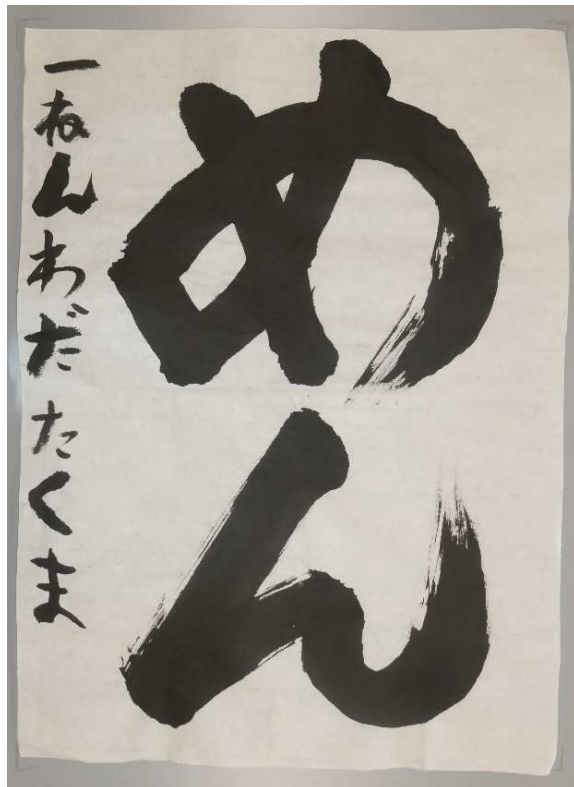 めん
一ねんわだたくま